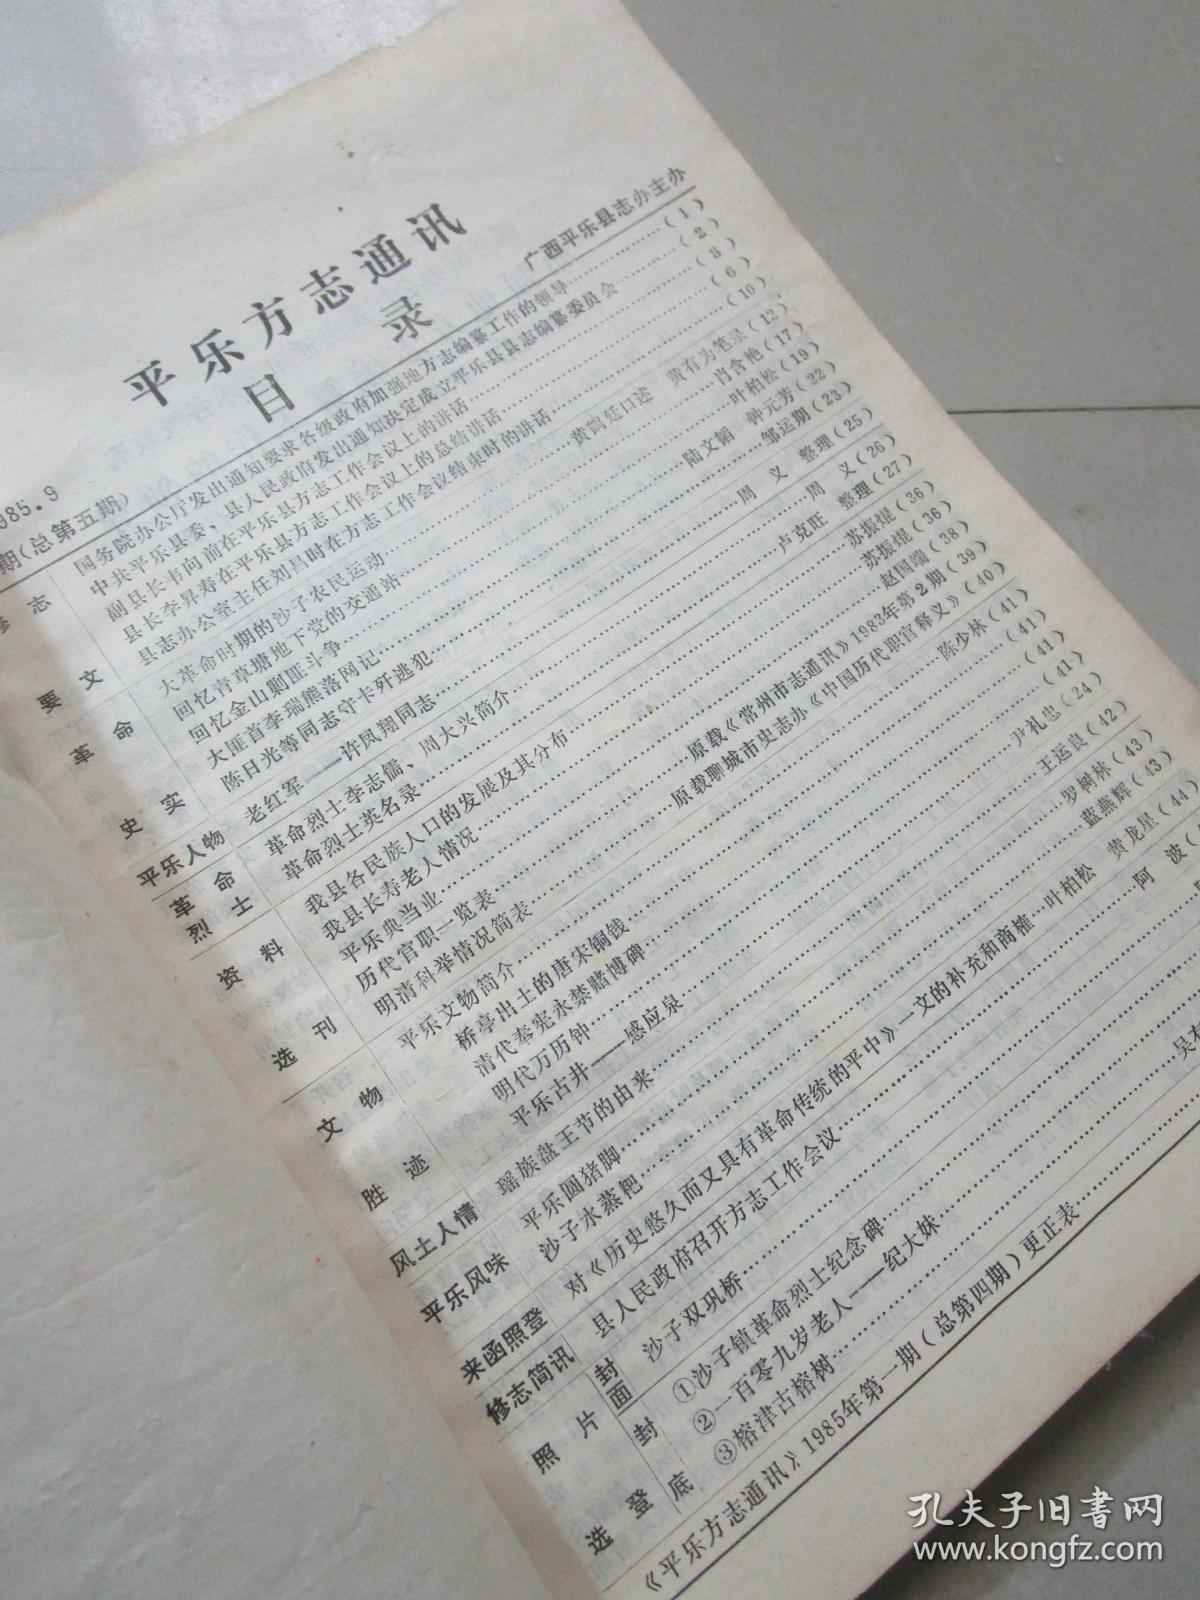 平乐方志通讯
目录
广西平乐县志办主办
985.9
期(总第五期)
修志要文
国务院办公厅发出通知要求各级政府加强地方志编纂工作的领导……(1)
中共平乐县委、县人民政府发出通知决定成立平乐县县志编纂委员会……(2)
副县长韦向前在平乐县方志工作会议上的讲话……(3)
县长李昇寿在平乐县方志工作会议上的总结讲话……(6)
县志办公室主任刘昌时在方志工作会议结束时的讲话……(10)
革命史实
大革命时期的沙子农民运动……黄鹤廷口述 黄有为笔录(12)
回忆青草塘地下党的交通站……肖含艳(17)
回忆金山剿匪斗争……叶柏松(19)
大匪首李瑞熊落网记……陆文韬 钟元芳(22)
陈日光等同志守卡歼逃犯……邹运期(23)
平乐人物
老红军——许凤翔同志……周义 整理(25)
革命烈士
革命烈士李志儒、周大兴简介……周义(26)
革命烈士英名录……卢克旺 整理(27)
资料选刊
我县各民族人口的发展及其分布……苏振焜(36)
我县长寿老人情况……苏振焜(36)
平乐典当业……赵国端(38)
历代官职一览表……原载《常州市志通讯》1983年第2期(39)
明清科举情况简表……原载聊城市史志办《中国历代职官释义》(40)
文物胜迹
平乐文物简介……陈少林(41)
桥亭出土的唐宋铜钱……(41)
清代奉宪永禁赌博碑……(41)
明代万历钟……(41)
平乐古井——感应泉……尹礼忠(24)
风土人情
瑶族盘王节的由来……王运良(42)
平乐风味
平乐圆猪脚……罗树林(43)
沙子水蒸粑……蓝燕辉(43)
来函照登
对《历史悠久而又具有革命传统的平中》一文的补充和商榷…叶柏松 黄龙星(44)
修志简讯
县人民政府召开方志工作会议……阿波(
照片选登
封面
沙子双巩桥……
封底
①沙子镇革命烈士纪念碑……吴有
②一百零九岁老人——纪大妹……
③榕津古榕树……
《平乐方志通讯》1985年第一期(总第四期)更正表……
孔夫子旧书网
www.kongfz.com